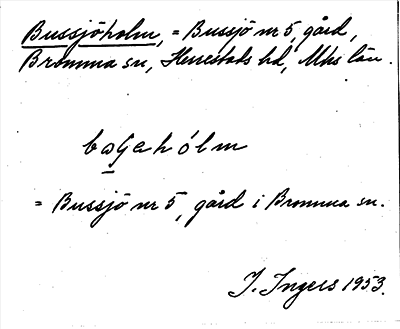 Bussjöholm, = Bussjö nr 5, gård,
Bromma sn, Herrestads hd, Mhs län.
= Bussjö nr 5, gård i Bromma sn.
I. Ingers 1953.